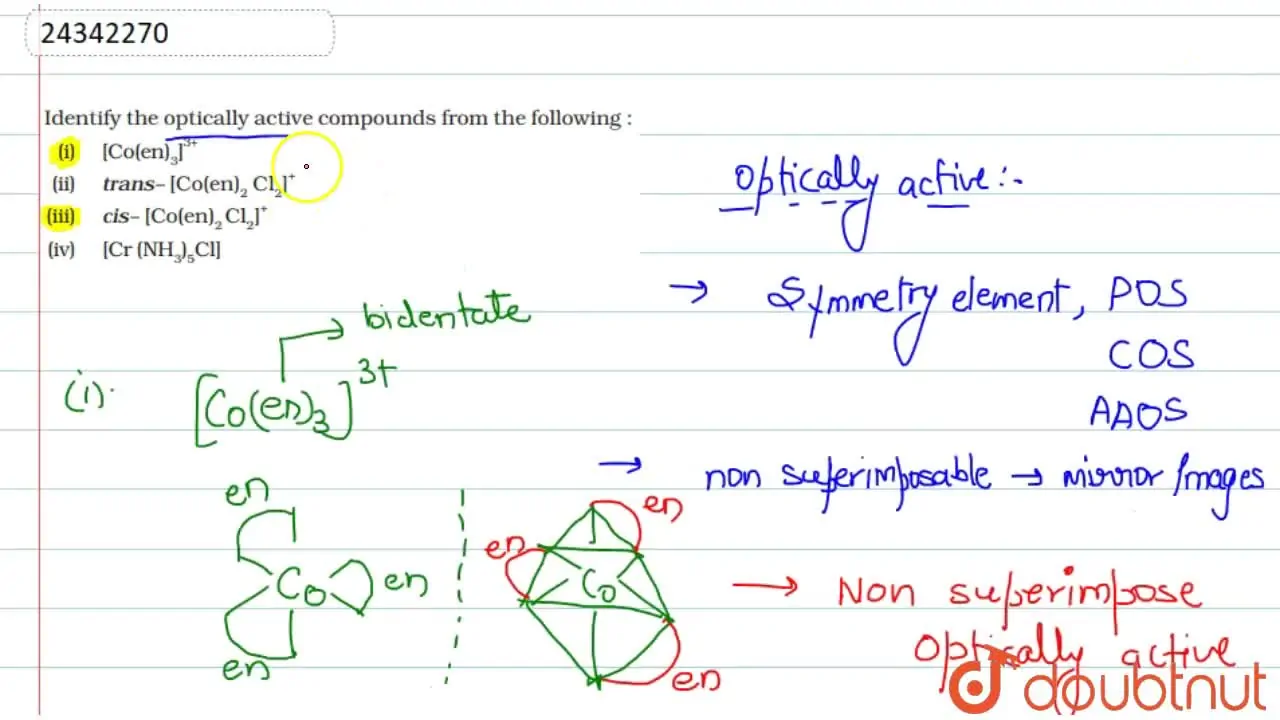 24342270
Identify the optically active compounds from the following :
(i) [Co(en)₃]³⁺
(ii) trans– [Co(en)₂ Cl₂]⁺
(iii) cis– [Co(en)₂ Cl₂]⁺
(iv) [Cr (NH₃)₅Cl]
Optically active :-
→ Symmetry element, POS
COS
AAOS
→ non superimposable → mirror Images
bidentate
(i). [Co(en)₃]³⁺
en
Co en
en
en
en
Co
en
→ Non superimpose
Optically active
doubtnut